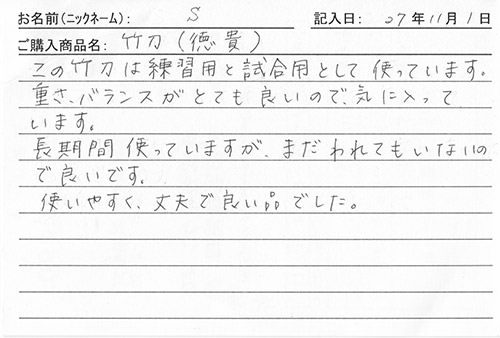 お名前(ニックネーム): S 記入日: 07年11月1日
ご購入商品名: 竹刀(徳貴)
この竹刀は練習用と試合用として使っています。
重さ、バランスがとても良いので、気に入って
います。
長期間使っていますが、まだわれてもいないの
で良いです。
使いやすく、丈夫で良い品でした。